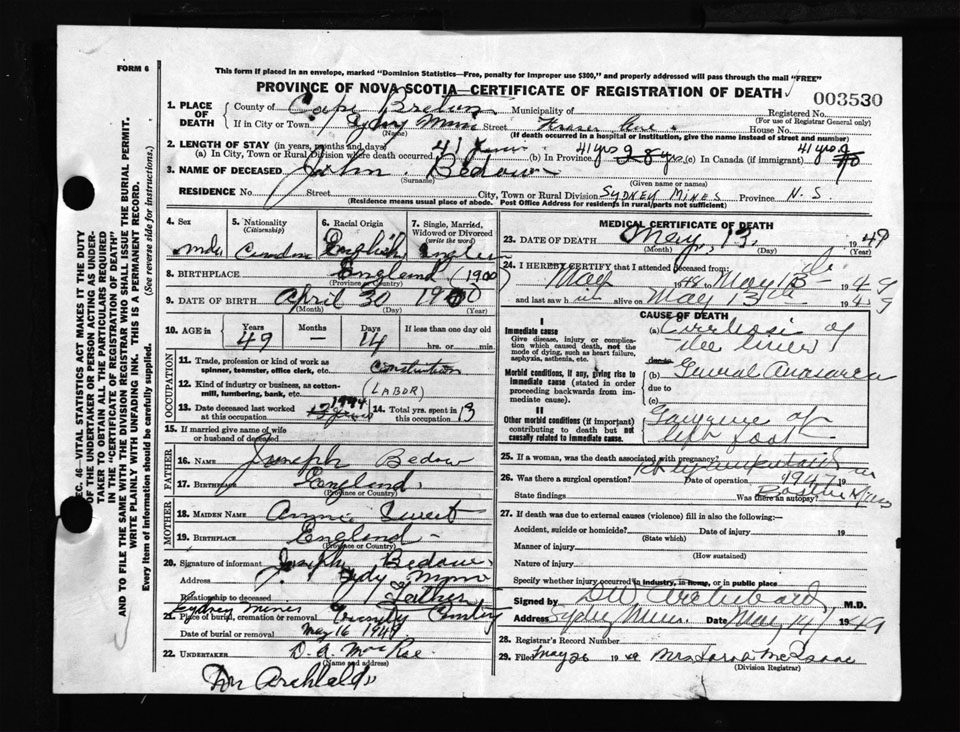 FORM 6
This form if placed in an envelope, marked "Dominion Statistics—Free, penalty for improper use $300," and properly addressed will pass through the mail "FREE"
PROVINCE OF NOVA SCOTIA—CERTIFICATE OF REGISTRATION OF DEATH
003530
SEC. 46—VITAL STATISTICS ACT MAKES IT THE DUTY
OF THE UNDERTAKER OR PERSON ACTING AS UNDER-
TAKER TO OBTAIN ALL THE PARTICULARS REQUIRED
IN THE "CERTIFICATE OF REGISTRATION OF DEATH"
AND TO FILE THE SAME WITH THE DIVISION REGISTRAR WHO SHALL ISSUE THE BURIAL PERMIT.
WRITE PLAINLY WITH UNFADING INK. THIS IS A PERMANENT RECORD.
Every item of Information should be carefully supplied. (See reverse side for instructions.)
1. PLACE OF DEATH
County of Cape Breton Municipality of Registered No.
(For use of Registrar General only)
If in City or Town Sydney Mines Street Fraser Ave. House No.
(Name) (If death occurred in a hospital or institution, give the name instead of street and number)
2. LENGTH OF STAY (in years, months and days)
(a) In City, Town or Rural Division where death occurred 41 years (b) In Province 41 yrs 28 yrs (c) In Canada (if immigrant) 41 yrs
3. NAME OF DECEASED John Bedow
(Surname) (Given name or names)
RESIDENCE No. Street City, Town or Rural Division SYDNEY MINES Province N. S.
(Residence means usual place of abode. Post Office Address for residents in rural parts not sufficient)
4. Sex male
5. Nationality (Citizenship) Canadian
6. Racial Origin English
7. Single, Married, Widowed or Divorced (write the word) Single
8. BIRTHPLACE England (1900)
(Province or Country)
9. DATE OF BIRTH April 30 1900
(Month) (Day) (Year)
10. AGE in Years 49 Months — Days 14 If less than one day old hrs. or min.
OCCUPATION
11. Trade, profession or kind of work as spinner, teamster, office clerk, etc. Construction
12. Kind of industry or business, as cotton-mill, lumbering, bank, etc. (LABOR)
13. Date deceased last worked at this occupation 1944
14. Total yrs. spent in this occupation 13
15. If married give name of wife or husband of deceased
FATHER
16. Name Joseph Bedow
17. Birthplace England
(Province or Country)
MOTHER
18. MAIDEN NAME Annie Sweet
19. Birthplace England
(Province or Country)
20. Signature of informant Joseph Bedow
Address Sydy Mines
Relationship to deceased Father
21. Place of burial, cremation or removal Sydney Mines Trinity Cemetery
Date of burial or removal May 16 1949
22. UNDERTAKER D. A. MacRae
(Name and address)
Dr. Archibald
MEDICAL CERTIFICATE OF DEATH
23. DATE OF DEATH May, 13, 1949
(Month) (Day) (Year)
24. I HEREBY CERTIFY that I attended deceased from:
May 1948 to May 13 1949
and last saw him alive on May 13th 1949
CAUSE OF DEATH
I
Immediate cause
Give disease, injury or complication which caused death, not the mode of dying, such as heart failure, asphyxia, asthenia, etc.
(a) Cirrhosis of the liver
due to
Morbid conditions, if any, giving rise to immediate cause (stated in order proceeding backwards from immediate cause).
(b) General Anasarca
due to
(c)
II
Other morbid conditions (if important) contributing to death but not causally related to immediate cause.
Gangrene of left foot
25. If a woman, was the death associated with pregnancy?
26. Was there a surgical operation? Date of operation 1947 19
State findings Was there an autopsy?
27. If death was due to external causes (violence) fill in also the following:—
Accident, suicide or homicide? Date of injury 19
(State which)
Manner of injury
(How sustained)
Nature of injury
Specify whether injury occurred in industry, in home, or in public place
Signed by DW Archibald, M.D.
Address Sydney Mines. Date May 14 1949
28. Registrar's Record Number
29. Filed May 26 1949 Mrs. Sarah McIsaac
(Division Registrar)